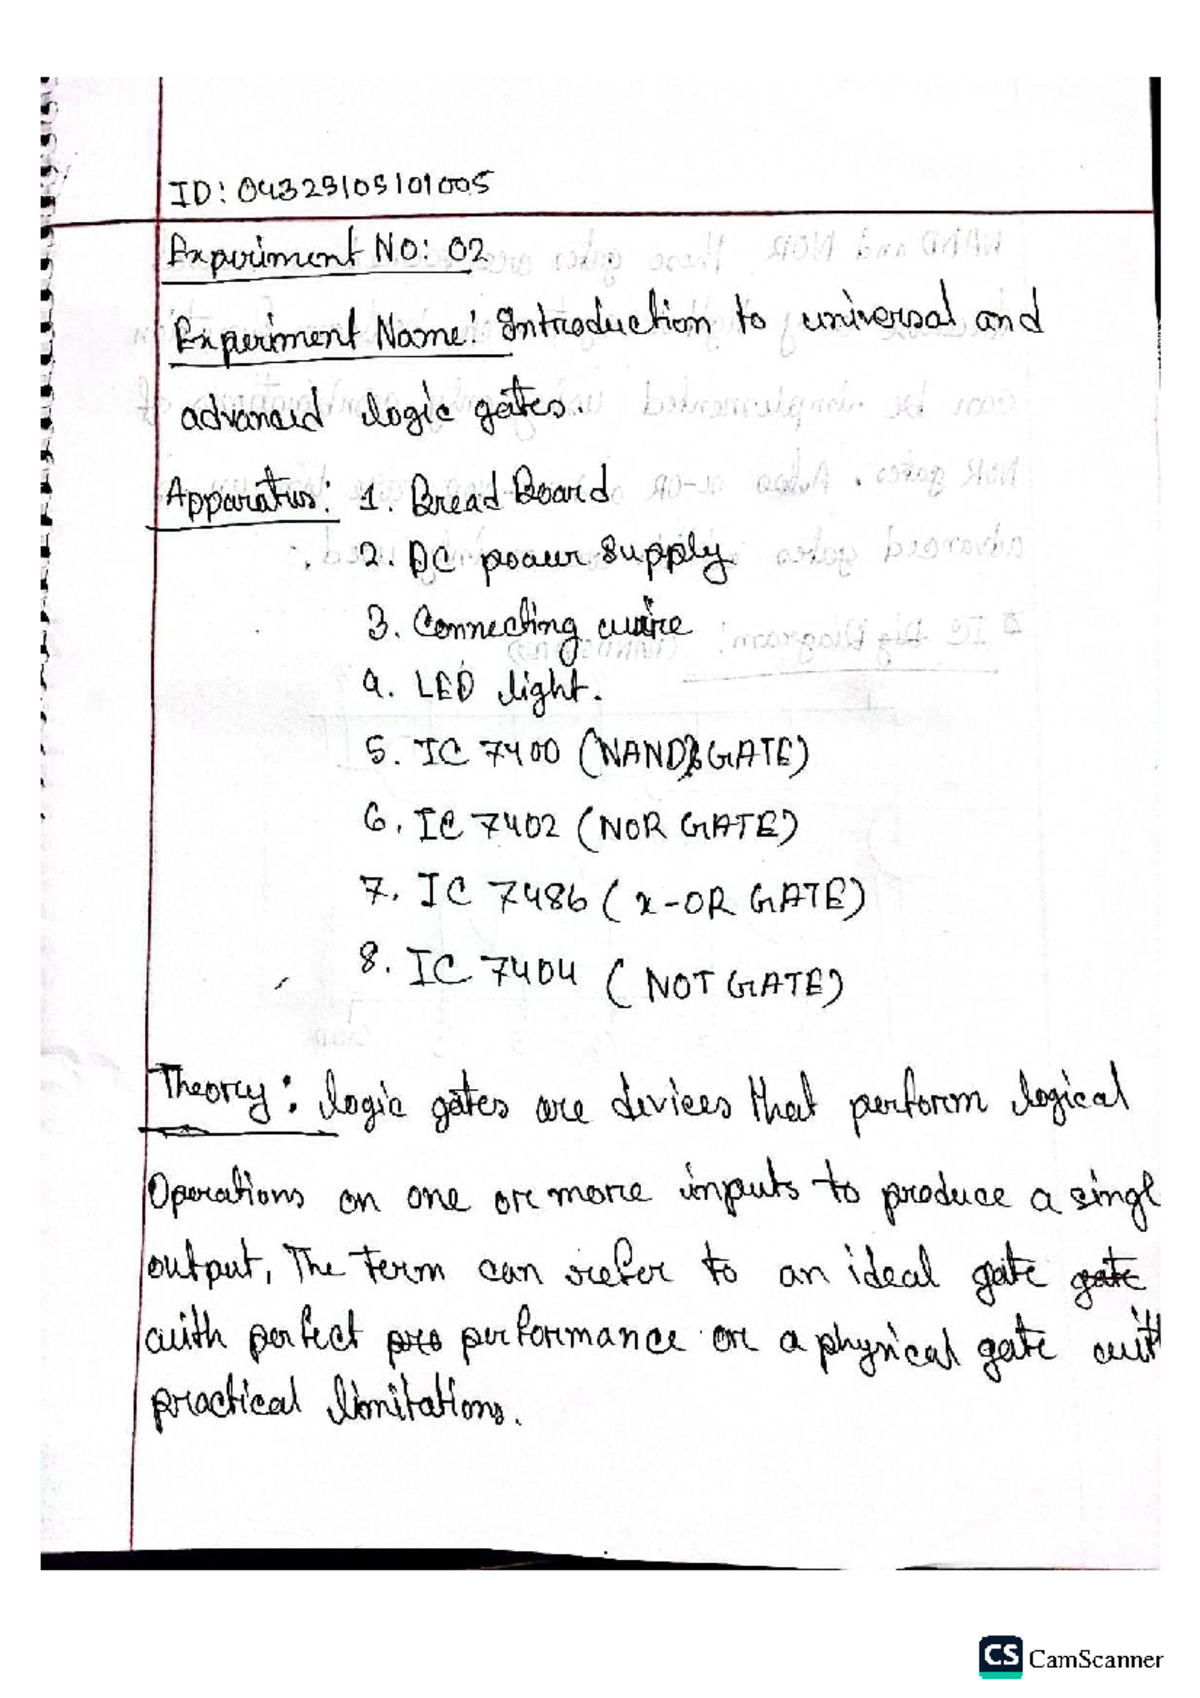 ID: 04329105101005
Experiment NO: 02
Experiment Name: Introduction to universal and
advanced logic gates.
Apparatus: 1. Bread Board
2. DC power supply
3. Connecting wire
4. LED light.
5. IC 7400 (NAND GATE)
6. IC 7402 (NOR GATE)
7. IC 7486 (x-OR GATE)
8. IC 7404 (NOT GATE)
Theory: logic gates are devices that perform logical
Operations on one or more inputs to produce a singl
output, The term can refer to an ideal gate gate
with perfect pro performance or a physical gate wit
practical limitations.
CS CamScanner